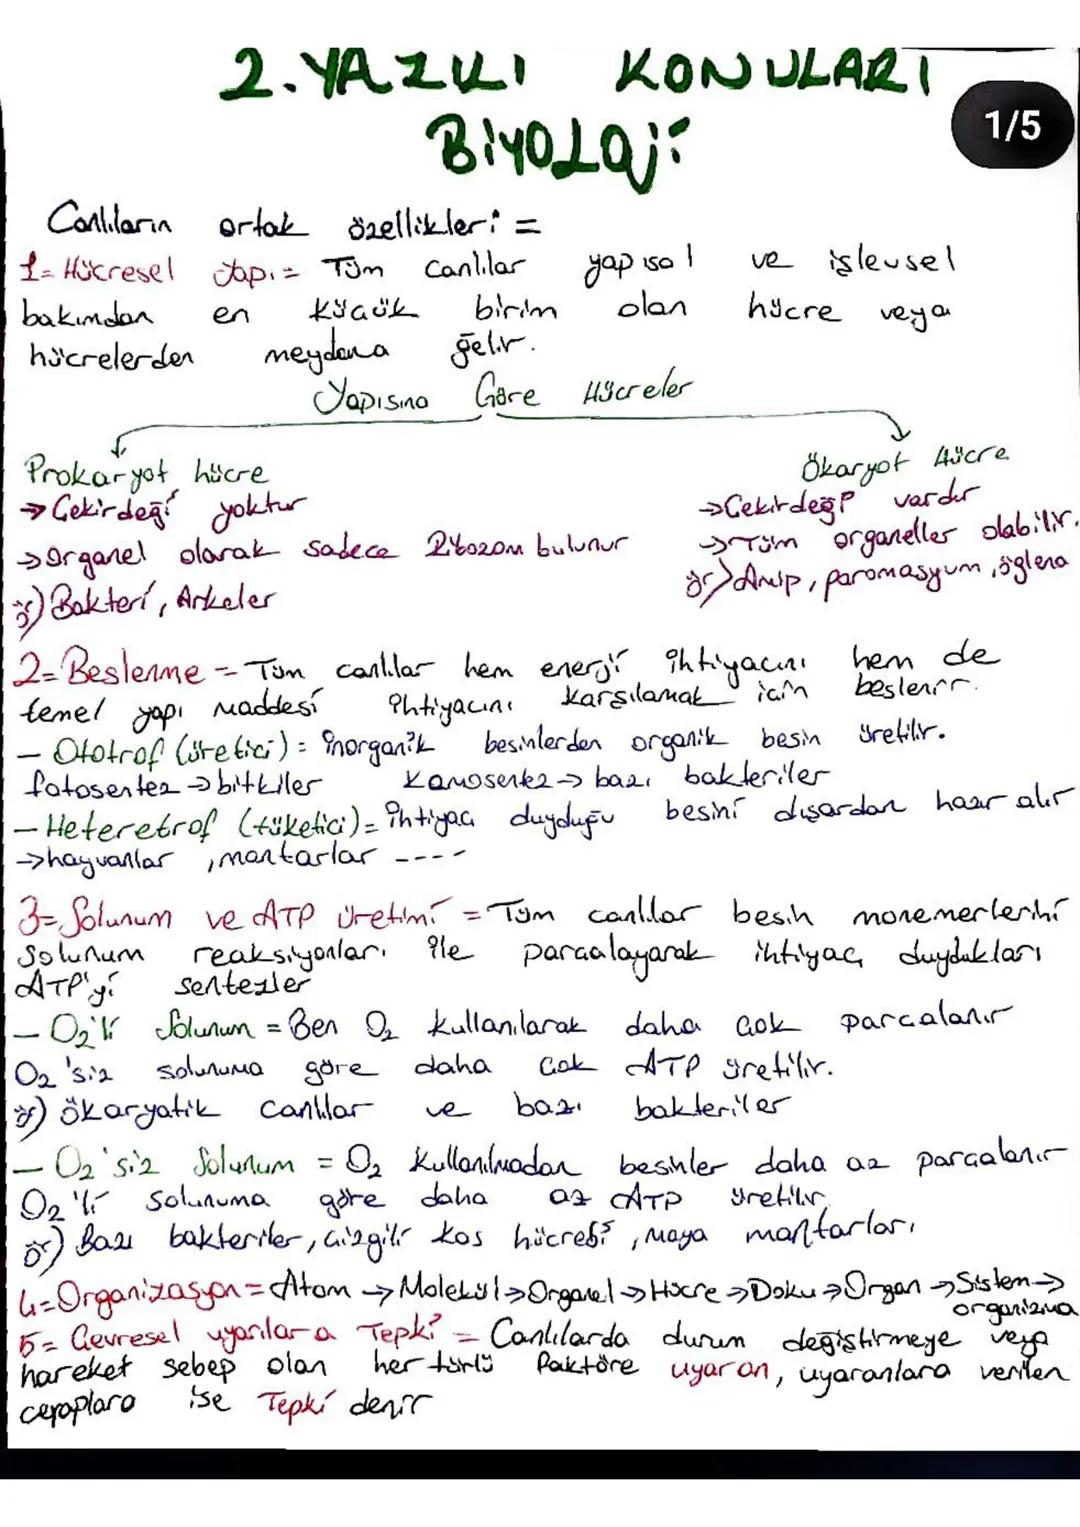 2. YAZILI KONULARI
BİYOLOJİ
1/5
Canlıların ortak özellikleri: =
1= Hücresel Yapı = Tüm canlılar yapısal ve işlevsel
bakımdan en küçük birim olan hücre veya
hücrelerden meydana gelir.
Yapısına Göre Hücreler
Prokaryot hücre
→ Çekirdeği yoktur
→ Organel olarak sadece Ribozom bulunur
ör) Bakteri, Arkeler
Ökaryot Hücre
→ Çekirdeği vardır
→ Tüm organeller olabilir.
ör) Amip, paromasyum, öglena
2= Beslenme = Tüm canlılar hem enerji ihtiyacını hem de
temel yapı maddesi ihtiyacını karşılamak için beslenir.
- Ototrof (üretici) = İnorganik besinlerden organik besin üretilir.
fotosentez → bitkiler Kemosentez → bazı bakteriler
- Heteretrof (tüketici) = ihtiyacı duyduğu besini dışardan hazır alır
→ hayvanlar, mantarlar ----
3= Solunum ve ATP üretimi = Tüm canlılar besin monemerlerini
solunum reaksiyonları ile parçalayarak ihtiyaç duydukları
ATP'yi sentezler
- O₂'li Solunum = Ben O₂ kullanılarak daha çok parçalanır
O₂'siz solunuma göre daha çok ATP üretilir.
ör) ökaryatik canlılar ve bazı bakteriler
- O₂'siz Solunum = O₂ kullanılmadan besinler daha az parçalanır
O₂'li solunuma göre daha az ATP üretilir.
ör) Bazı bakteriler, çizgili kas hücresi, maya mantarları
4= Organizasyon = Atom → Molekül → Organel → Hücre → Doku → Organ → Sistem →
organizma
5= Çevresel uyarılara Tepki = Canlılarda durum değiştirmeye veya
hareket sebep olan her türlü faktöre uyaran, uyaranlara verilen
cevaplara ise Tepki denir